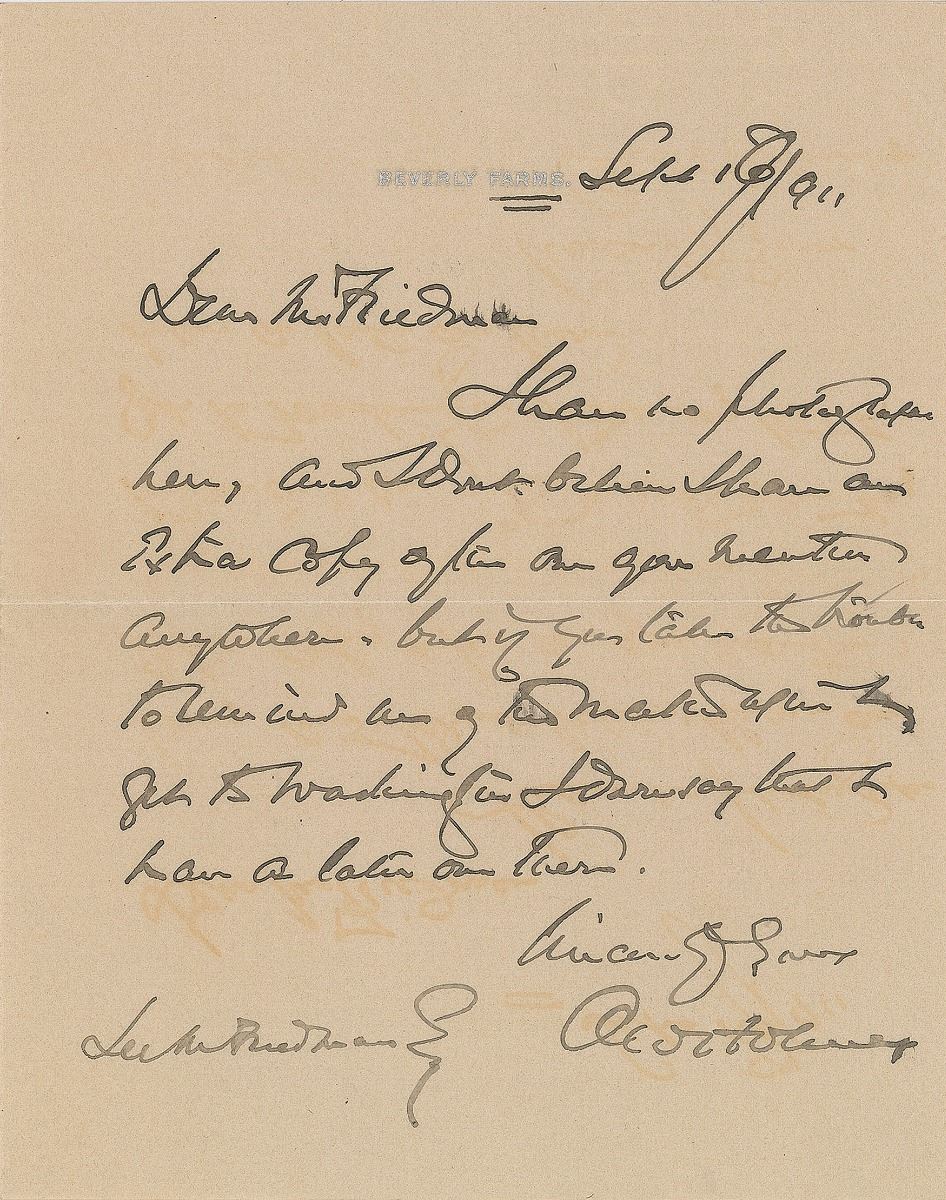 BEVERLY FARMS. Sept 16/911
Dear Mr Friedman
I have no photographs
here, and I don't believe I have an
extra copy of the one you mention
anywhere. but if you take the trouble
to remind me of the matter when I
get to Washington I daresay that I
have a later one there.
Sincerely Yours
O W Holmes
Lee M Friedman Esq